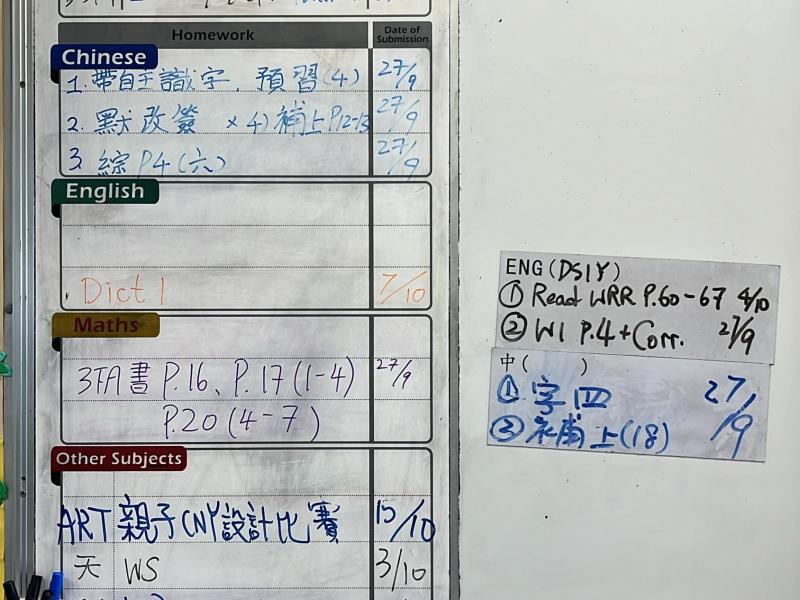 Homework Date of Submission
Chinese
1. 帶自主識字, 預習(4) 27/9
2. 默改簽 ×4) 補上P.12-13 27/9
3. 綜P4(六) 27/9
English
Dict 1 7/10
Maths
3TA書 P.16、P.17(1-4) 27/9
P.20(4-7)
Other Subjects
ART 親子CNY設計比賽 15/10
天 WS 3/10
ENG (DS1Y)
① Read WRR P.60-67 4/10
② W1 P.4+Corr. 27/9
中( )
① 字四 27/9
② 補上(18)